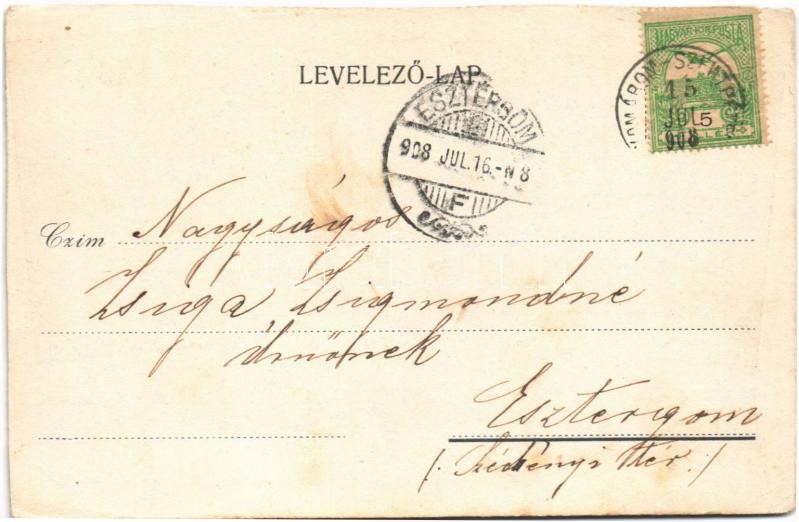 LEVELEZŐ-LAP
MAGYAR KIR. POSTA
15
JUL
908
5
ESZTERGOM
908 JUL.16.-N8
F
Czim Nagyságos
Zsiga Zsigmondné
úrnőnek
Esztergom
(Széchényi tér.)